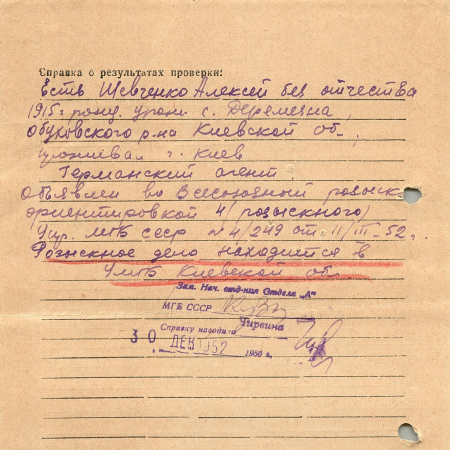 Справка о результатах проверки:
Есть Шевченко Алексей без отчества
1915 г рожд. урож. с. Деремезна,
Обуховского р-на Киевской об.,
проживал г. Киев
Германский агент
Объявлен во Всесоюзный розыск
ориентировкой 4/розыскного/
Упр. МГБ СССР № 4/249 от 11/III-52.
Розыскное дело находится в
УМГБ Киевской об.
Зам. Нач. отд-ния Отдела „А"
МГБ СССР
Справку наводи-а Чирвина
30 ДЕК 1952 1950 г.